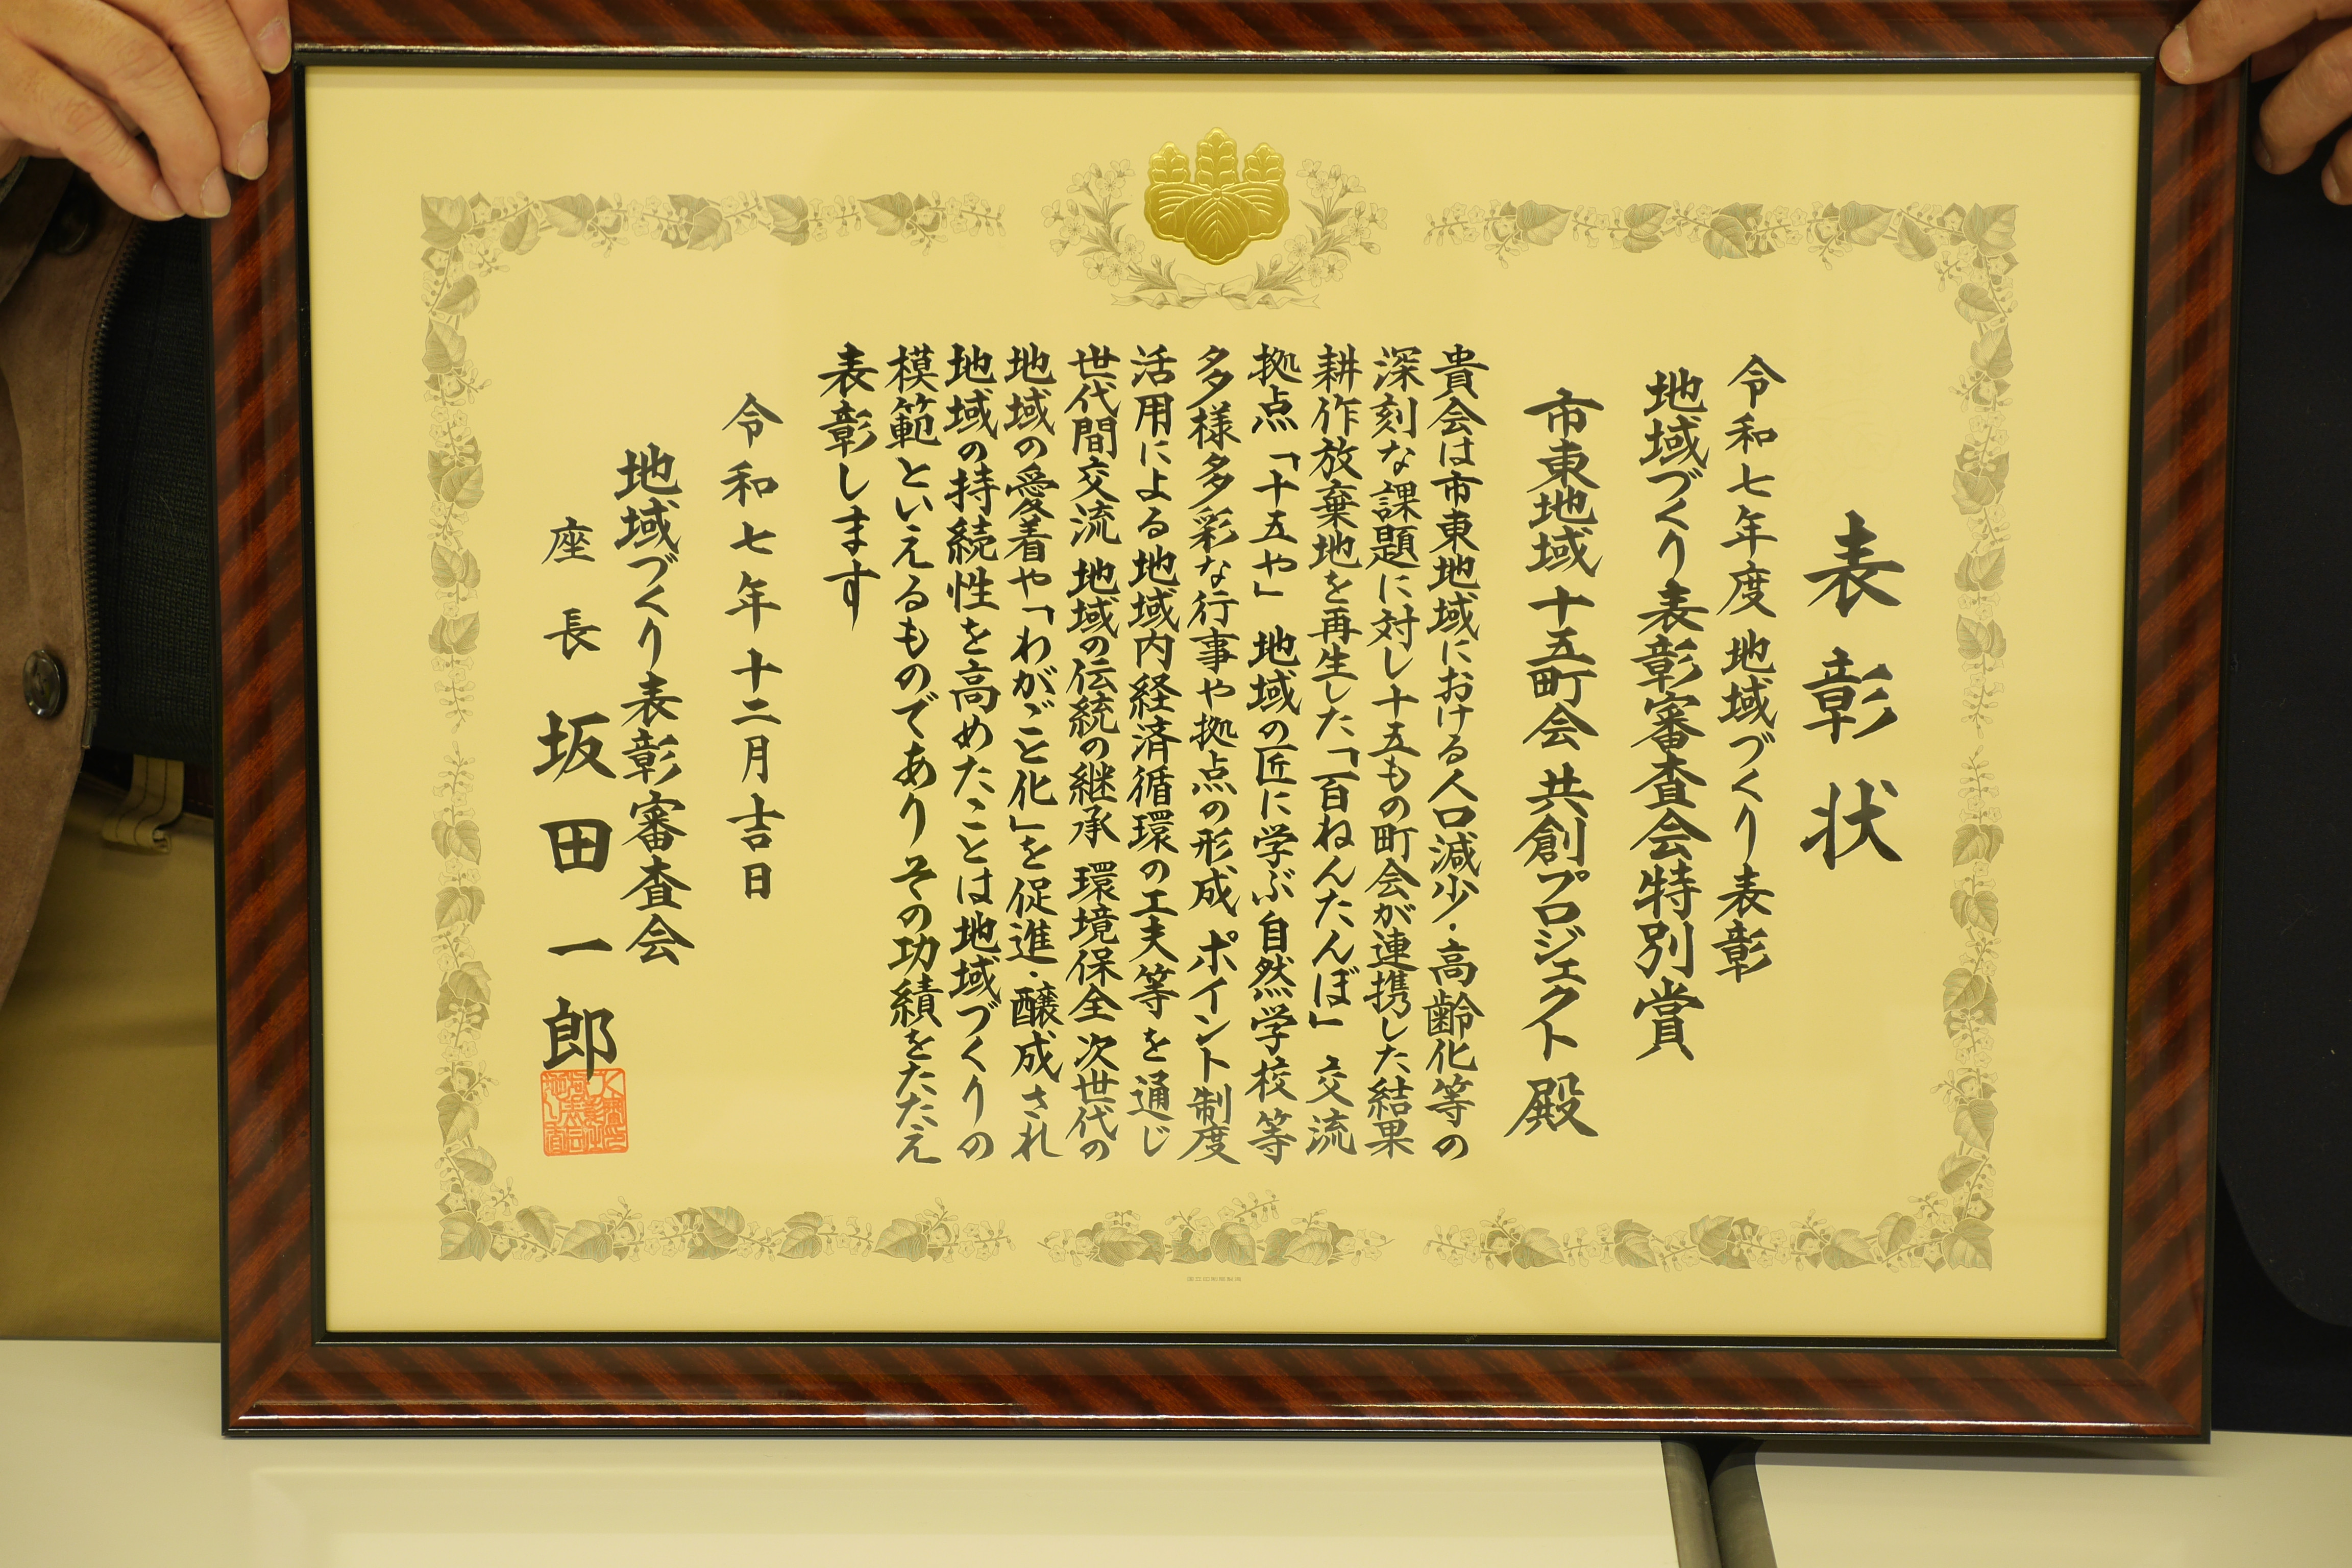 表彰状
令和七年度 地域づくり表彰
地域づくり表彰審査会特別賞
市東地域 十五町会 共創プロジェクト 殿
貴会は市東地域における人口減少・高齢化等の
深刻な課題に対し十五もの町会が連携した結果
耕作放棄地を再生した「百ねんたんぼ」 交流
拠点「十五や」 地域の匠に学ぶ自然学校等
多様多彩な行事や拠点の形成 ポイント制度
活用による地域内経済循環の工夫等を通じ
世代間交流 地域の伝統の継承 環境保全 次世代の
地域の愛着や「わがごと化」を促進・醸成され
地域の持続性を高めたことは地域づくりの
模範といえるものであり その功績をたたえ
表彰します
令和七年十二月吉日
地域づくり表彰審査会
座長 坂田一郎